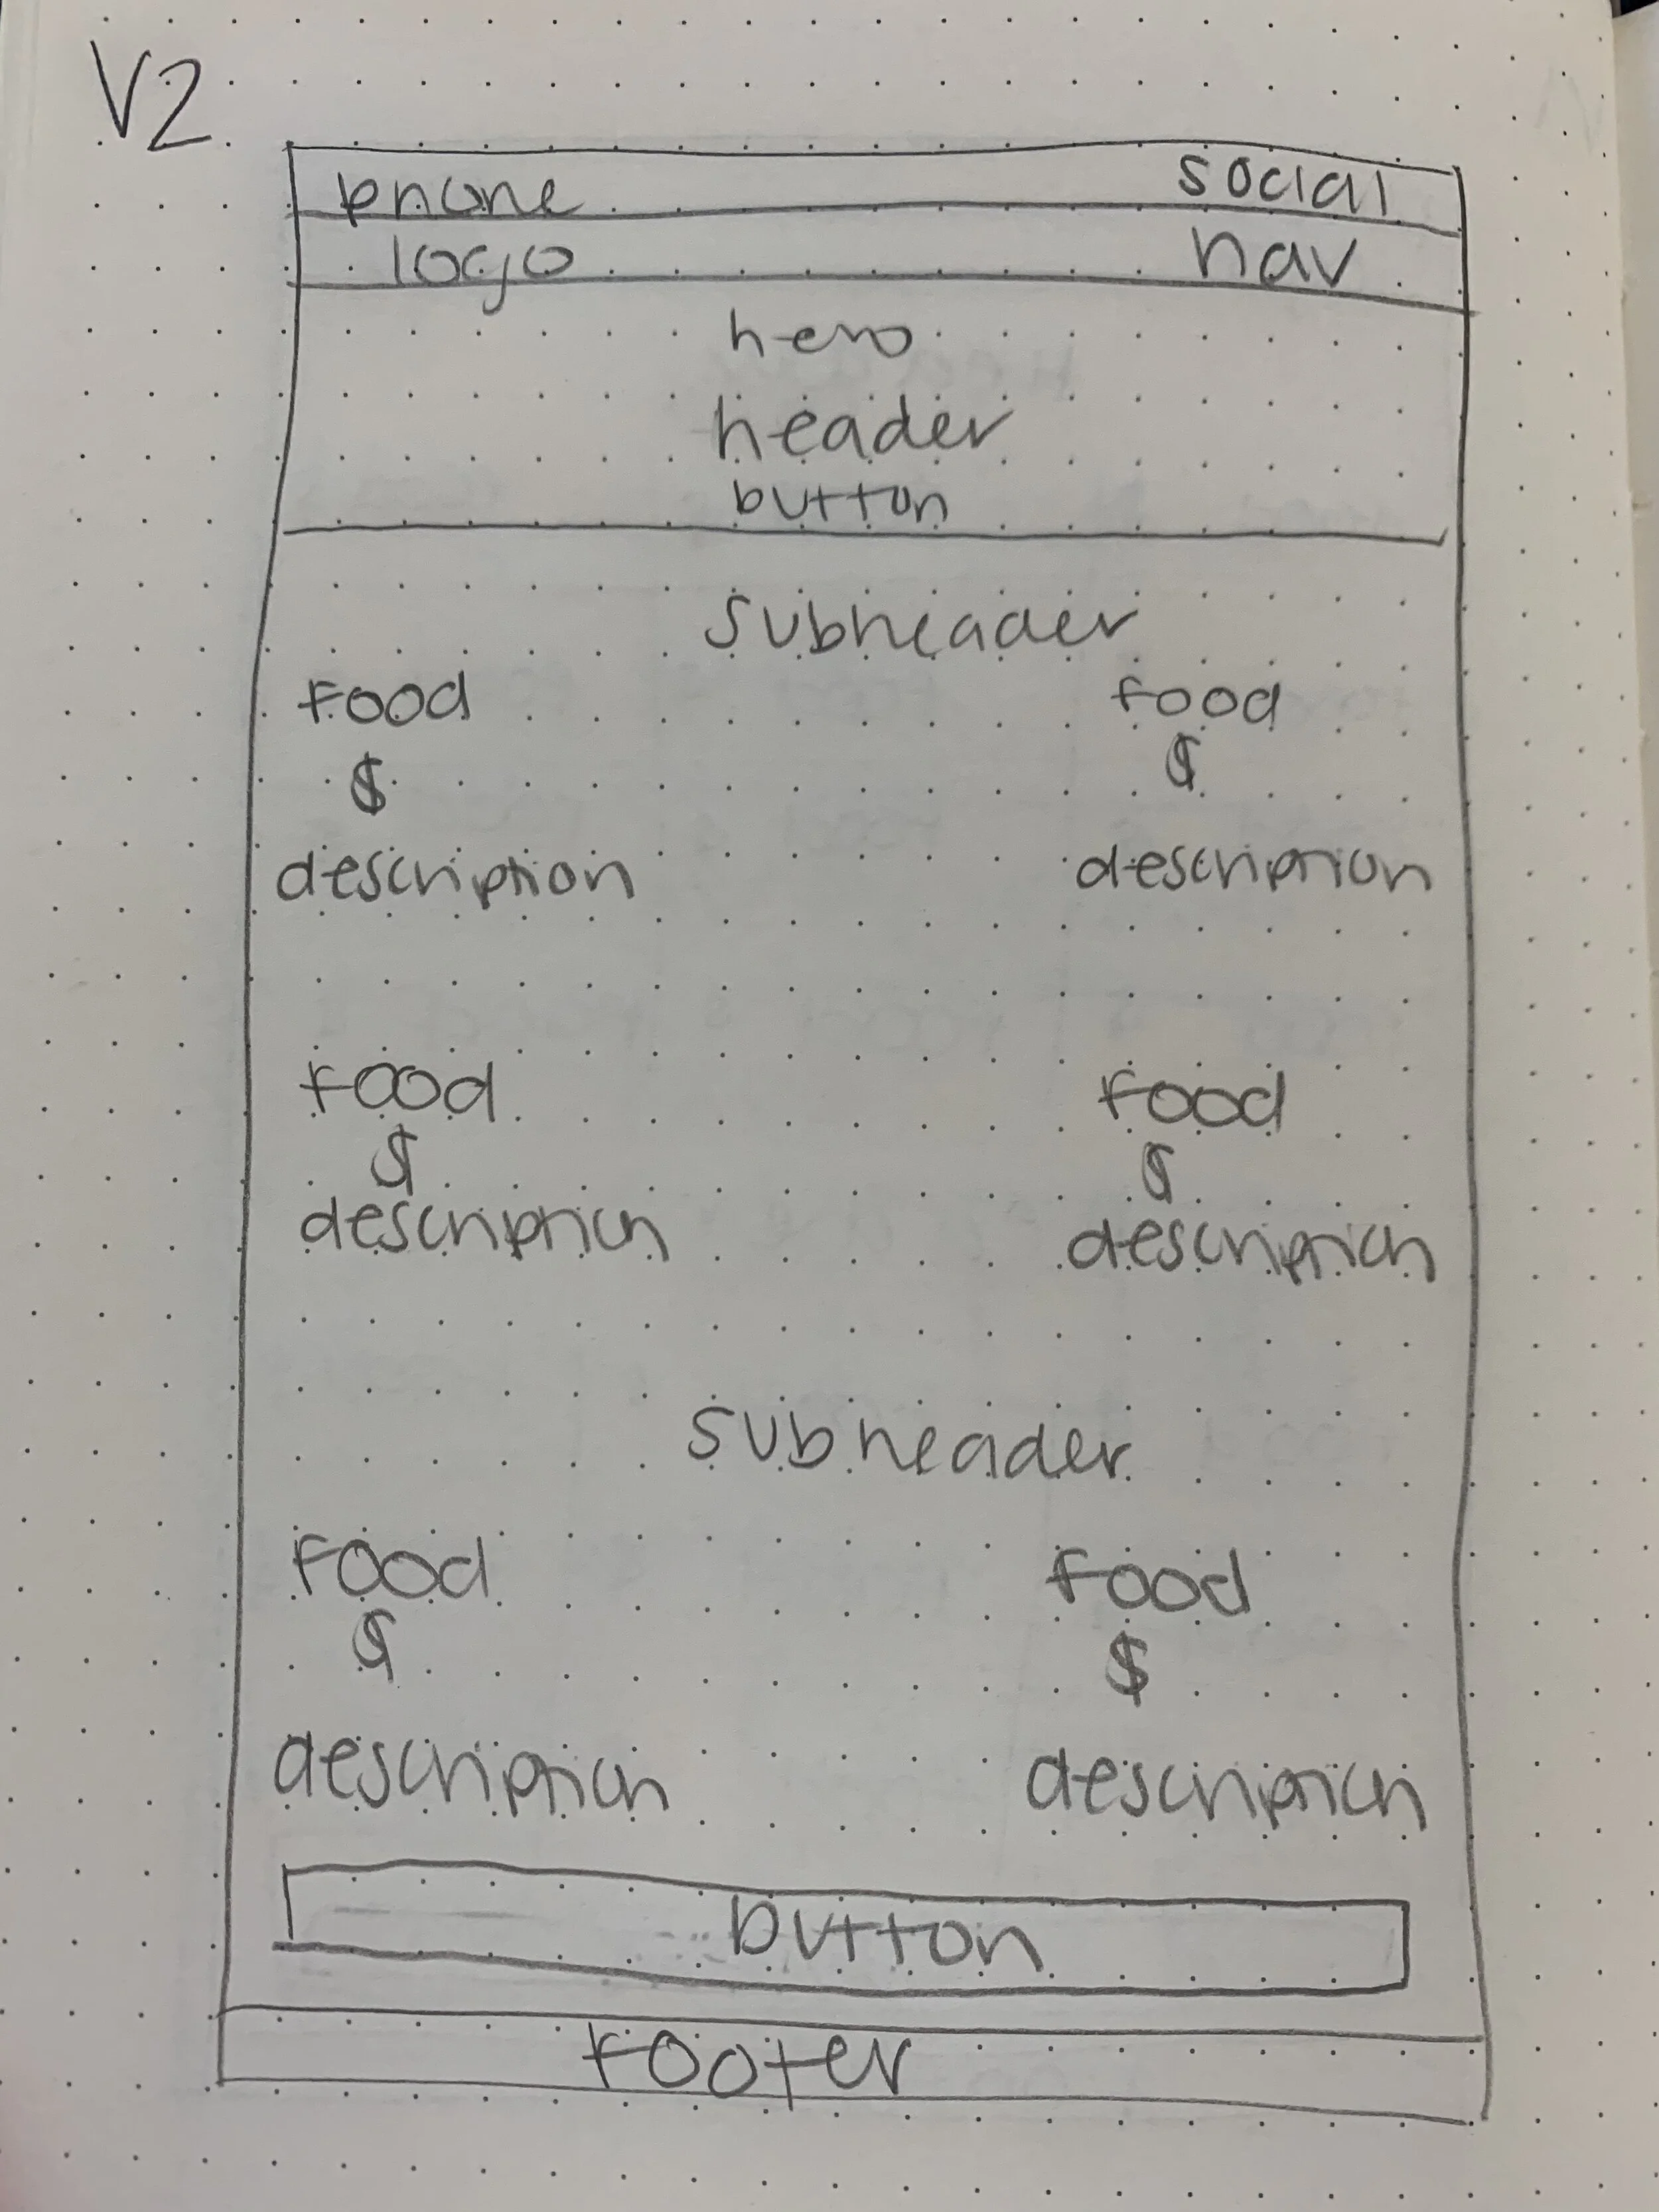 V2
phone social
logo nav
hero
header
button
subheader
food food
$ $
description description
food food
$ $
description description
subheader
food food
$ $
description description
button
footer